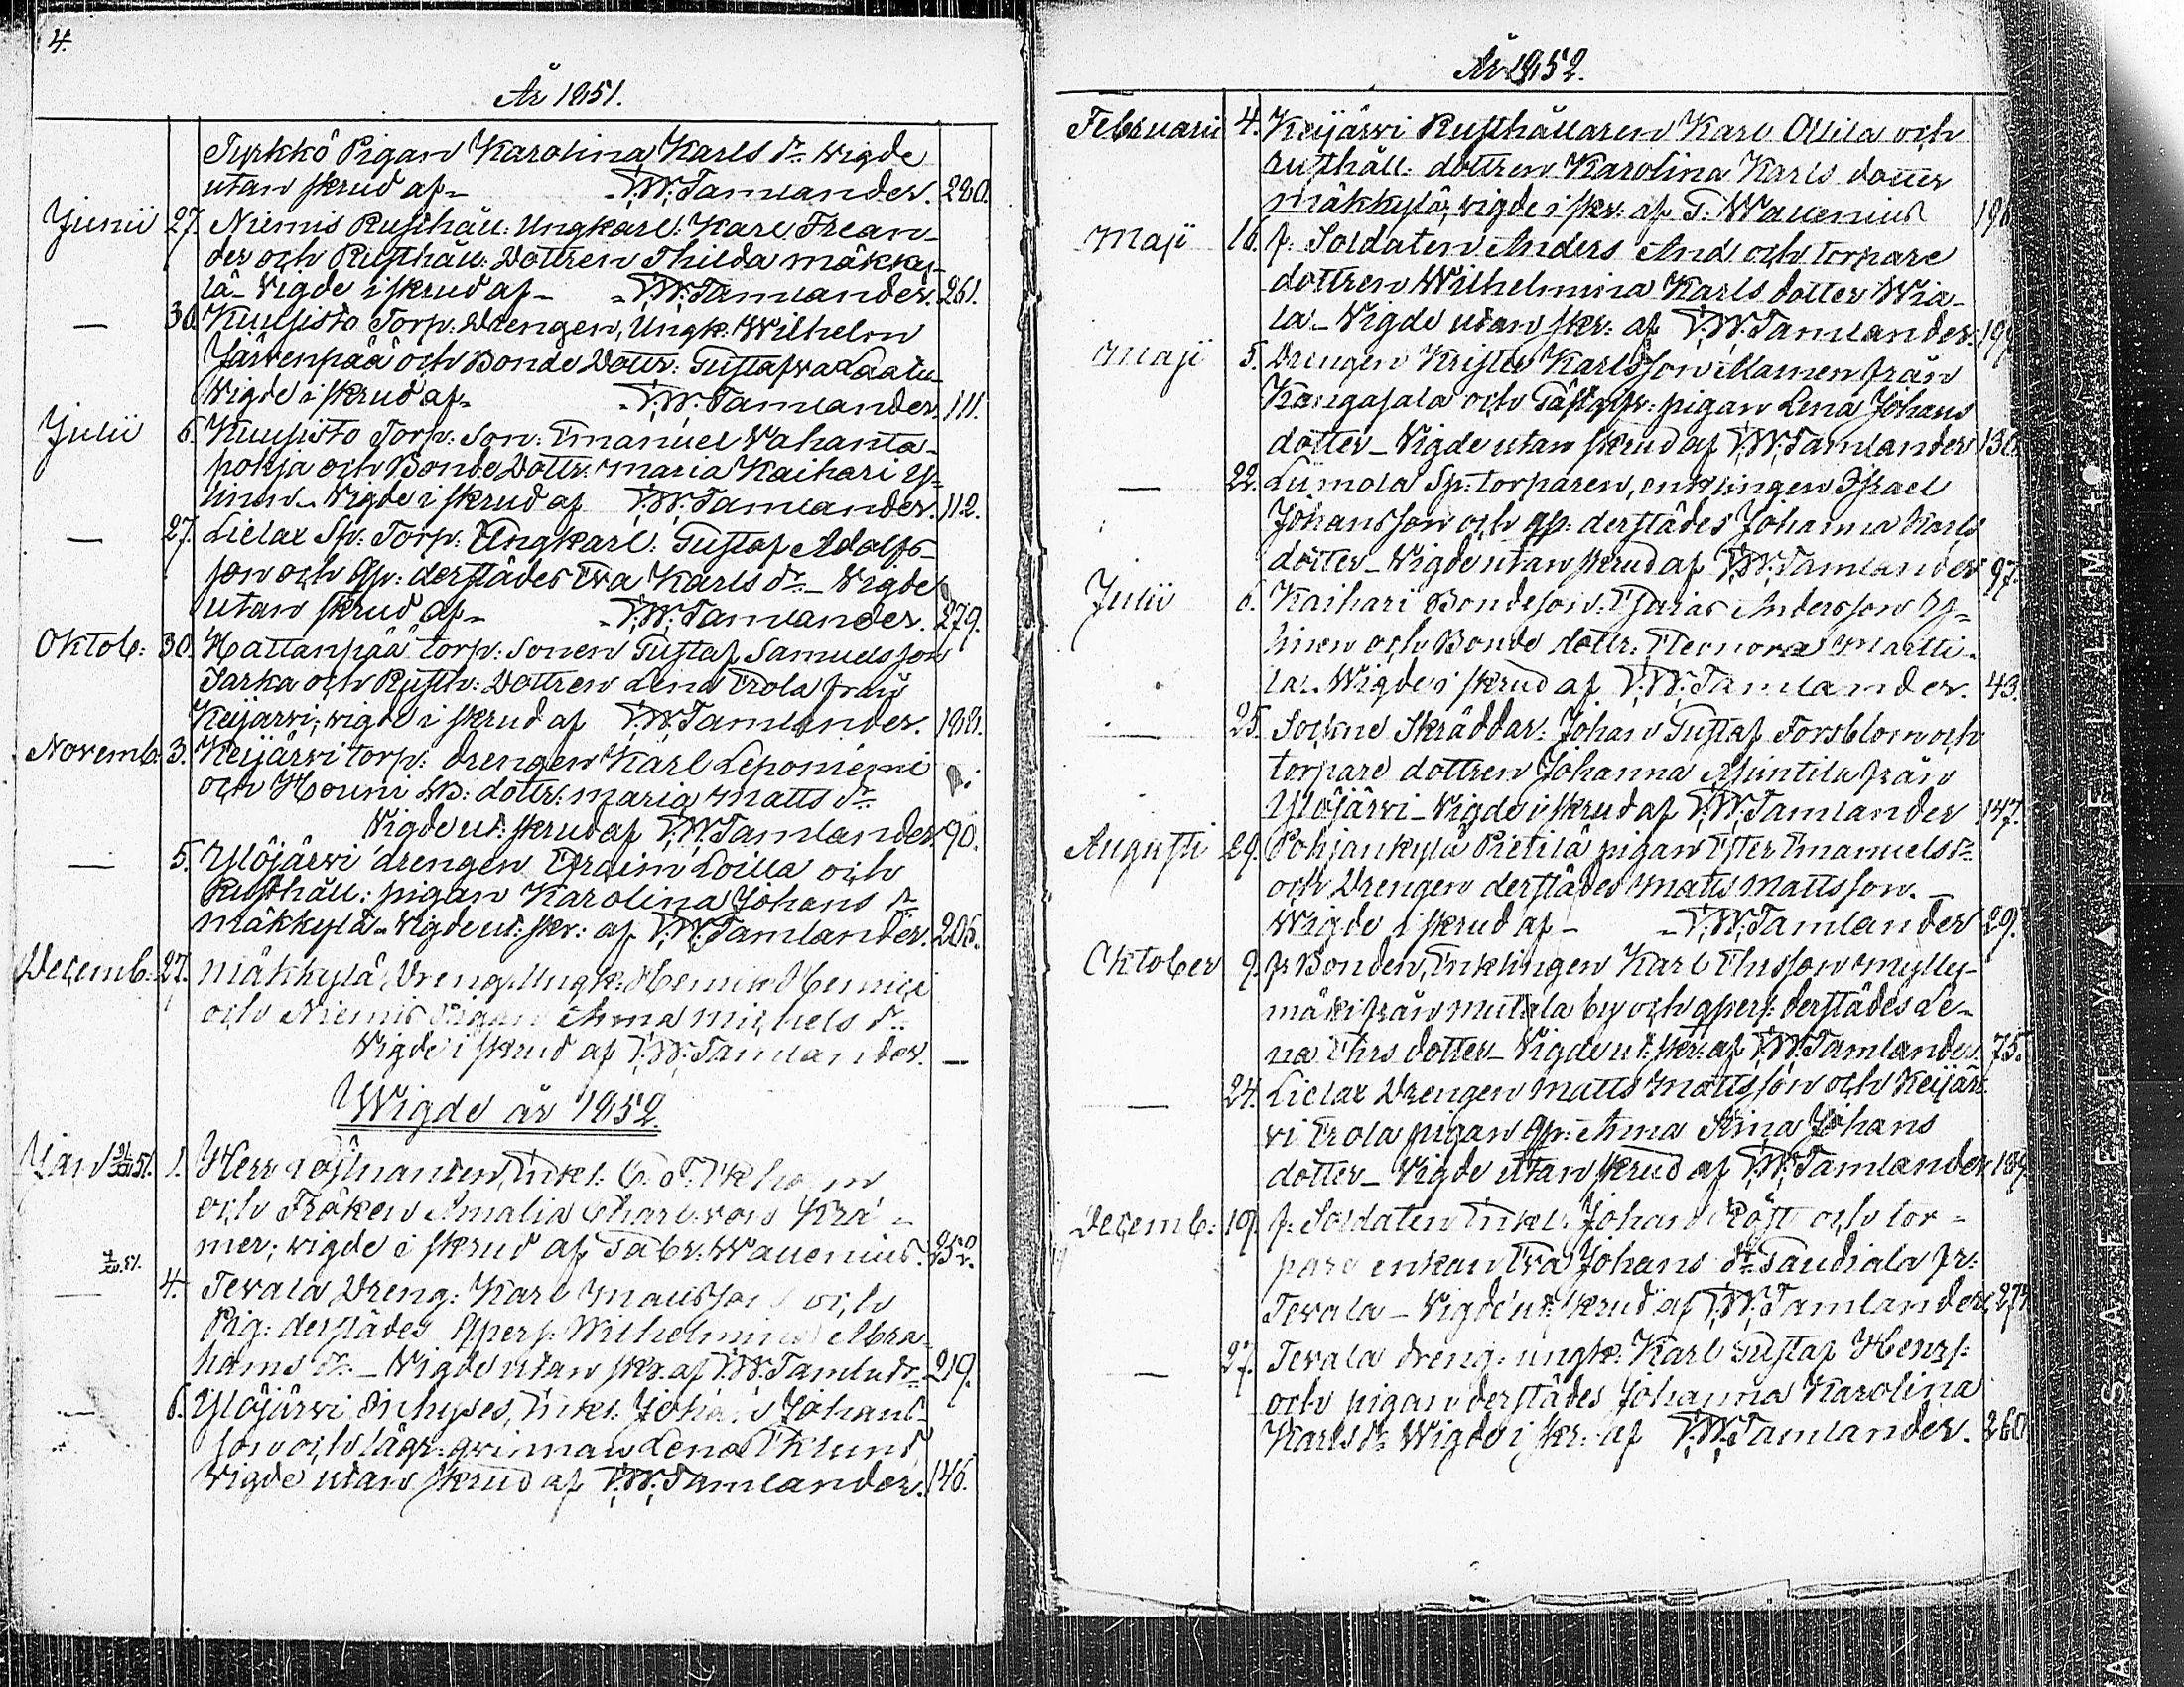 4.
År 1851.
Tyrkkö Pigan Karolina Karls dr. vigde
utan skrud af - F. W. Tamlander. 280.
Junii 27. Niemis Rusthåll: Ungkarl: Karl Frean-
der och Rusthåll: Dottren Thilda Mäkky-
lä - Vigde i skrud af - F. W. Tamlander. 261.
— 30. Kuusisto Torp: Drengen, Ungk: Wilhelm
Järvenpää och Bonde Dottr: Gustafva Laatu
Vigde i skrud af - F. W. Tamlander. 111.
Julii 6. Kuusisto Torp: Son: Emanuel Vahanta-
pohja och Bonde Dottr: Maria Kaihari Y-
linen - Vigde i skrud af F. W. Tamlander. 112.
— 27. Lielax Sp: Torp: Ungkarl: Gustaf Adolfs-
son och Qp: derstädes Eva Karls dr: - Vigde
utan skrud af - F. W. Tamlander. 279.
Oktob: 30. Hattanpää torp: Sonen Gustaf Samuelsson
Sarka och Rusth: Dottren Lena Erola från
Keijärvi; vigde i skrud af F. W. Tamlander. 188.
Novemb: 3. Keijärvi torp: drengen Karl Leponiemi
och Houni B: dottr: Maria Matts dr:
Vigde ut: skrud af F. W. Tamlander 90.
— 5. Ylöjärvi drengen Efraim Loilla och
Rusthåll: pigan Karolina Johans dr:
Mäkkylä - Vigde ut: skr: af F. W. Tamlander. 206.
Decemb: 27. Mäkkylä Dreng Ungk: Henrik Henrics
och Niemis Pigan Anna Michels dr:
Vigde i skrud af F. W. Tamlander. —
Wigde år 1852.
Jan 1. Herr Löjtnanten, Enkl: C. F. Ekholm
och Fröken Amalia Charl: von Kræ-
mer; vigde i skrud af Fabr: Wallenius. 252.
— 4. Tevala Dreng: Karl Mattsson och
Pig: derstädes Qpers: Wilhelmina Abra-
hams dr: - Vigde utan skr. af F. W. Tamlndr 219.
— 6. Ylöjärvi Inhyses, Enkl: Johan Johans-
son och lägr: qvinnan Lena Eklund
Vigde utan skrud af F. W. Tamlander. 146.
År 1852.
Februarii 4. Keijärvi Rusthållaren Karl Ollila och
rusthåll: dottren Karolina Karls dotter
Mäkkylä, vigde i skr: af G: Wallenius 196
Maji 16. f: Soldaten Anders And och torpare
dottren Wilhelmina Karls dotter Wia-
la - Vigde utan skr: af F. W. Tamlander.
Maji 5. Drengen Krister Karlsson Mamen från
Kangasala och Gästgfr: pigan Lena Johans
dotter - Vigde utan skrud af F. W. Tamlander 130.
— 22. Liimola Sp: torparen, enklingen Israel
Johansson och qp: derstädes Johanna Karls
dotter - Vigde utan skrud af F. W. Tamlander 97.
Julii 6. Kaihari Bondeson: Esaias Andersson Y-
linen och Bonde dottr: Eleonora Martti-
la - Vigde i skrud af F. W. Tamlander. 43.
— 25. Sockne Skräddar: Johan Gustaf Forsblom och
torpare dottren Johanna Muntila från
Ylöjärvi - Vigde i skrud af F. W. Tamlander 147.
Augusti 29. Pohjankylä Pietilä pigan Ester Emanuels dr
och Drengen derstädes Matts Mattsson. -
Wigde i skrud af - F. W. Tamlander 29.
Oktober 9. fr Bonden, Enklingen Karl Thusson Mylly-
mäki från Mutala by och qpers: derstädes Le-
na Thrs dotter - Vigde ut: skr: af F. W. Tamlander. 75.
— 24. Lielax Drengen Matts Mattsson och Keijär-
vi Erola pigan Qp: Anna Stina Johans
dotter - Vigde utan skrud af F. W. Tamlander 189.
Decemb: 19. f: Soldaten Enkl: Johan Röst och tor-
pare enkan Eva Johans dr: Taudiala fr:
Tevala - Vigde ut: skrud af F. W. Tamlander,
— 27. Tevala dreng: ungk: Karl Gustaf Henrs:
och pigan derstädes Johanna Karolina
Karls dr. Wigde i skr: af F. W. Tamlander. 260